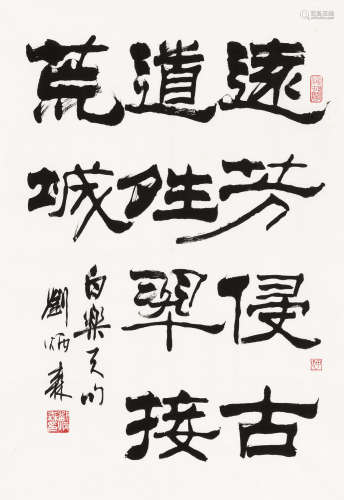 遠芳侵古
道夝翠接
荒城
白樂天句
劉炳森